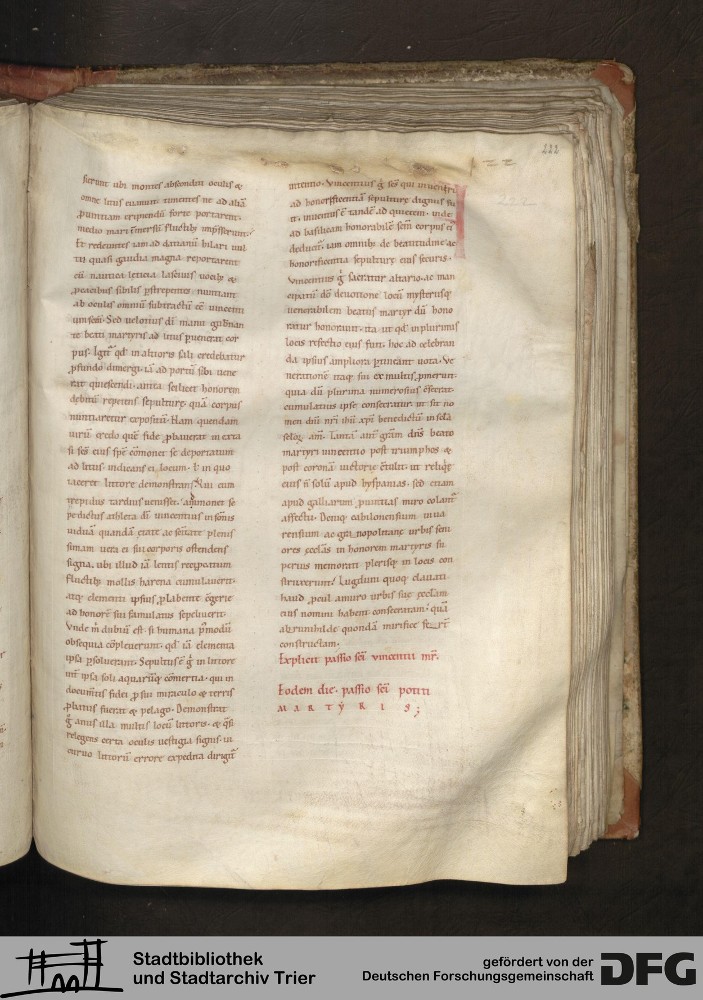 222
222
sierunt ubi montes abscondit oculis &
omne litus euanuit timentes ne ad aliā
ꝓuintiam eripiendū forte portarent.
medio mari īmersū fluctibꝰ imp̄sserunt.
Et redeuntes iam ad datianū hilari uul
tu quasi gaudia magna reportarent
cū nautica leticia lasciuis uocibꝰ &
ꝓcacibus sibilis ꝑstrepentes nuntiant
ab oculis omniū subtractū eē uincenti
um sem̄. Sed uelotius dī manu gubnan
te beati martyris ad litus puenerat cor
pus. Igit̄ qđ in altioris sali credebatur
ꝓfundo dimergi. iā ad portū sibi uene
rat quiescendi. anita scilicet honorem
debitū repetens sepulturę quā corpus
nuntiaretur expositū. Nam quendam
uirū credo quē fide ꝓbauerat in exta
si scs̄ eius sp̄c cōmonet se deportatum
ad litus indicans ei locum. ł in quo
iaceret littore demonstrans. Qui cum
trepidus tardius uenisset. ammonet se
pe dictus athleta dī uincentius in sōnis
uiduā quandā etate ac sc̄itate plenis
simam uera ei sui corporis ostendens
signa. ubi illud iā lentis receptatum
fluctibꝰ mollis harena cumulauerit.
atq; elementi ipsius ꝓlabente c̄gerie
ad honorē sui famulatus sepelierit.
Vnde m̄ dubiū est. si humana p̄modū
obsequia cōpleuerunt. qđ iā elementa
ipsa ꝑsoluerant. Sepultus ē g̊ in littore
documtis fidei ꝓ sui miraculo & terris
ꝓbatus fuerat & pelago. Demonstrat
g̊ anus illa multis locū littoris. & q̄si
relegens certa oculis uestigia signis. in
curuo littorū errore expedita dirigit̄
intentio. Vincentius g̊ scs̄ qui inueniri
ad honorificentiam sepulturę dignus fu
it. inuentus ē tandē ad quietem. inde
ad basilicam honorabilē sem̄ corpus eī
deducit̄. iam omnibꝰ de beatitudine ac
honorificentia sepulturę eius securis.
Vincentius g̊ sacratur altario. ac man
cipatū dō deuotione locū mysteriisq;
uenerabilem beatus martyr dū hono
ratur honorauit. ita ut qđ in plurimis
locis respectio eius fuit. hoc ad celebran
da ipsius ampliora ptineant uota. Ve
neratione itaq; sui ex multis ꝓmerunt.
quia dū plurima numerosius c̄ferūt.
cumulatius ipse consecratur. ut sit no
men dn̄i nr̄i ihū xp̄i benedictū in secla
selox. am̄. Tantā aut̄ gr̄am dn̄s beato
martyri uincentio post triumphos &
post coronā uictorię c̄tulit. ut reliqę
eius n̄ solū apud hyspanias. sed etiam
apud galliarum ꝓuintias miro colant̄
affectu. Deniq; cabilonensium. uiua
rensium ac gr̄a nopolitanę urbis seni
ores ęcclās in honorem martyris su
perius memorati plerisq; in locis con
struxerunt. Lugdum quoq; clauati
haud ꝓcul amuro urbis suę ęcclam
eius nomini habent consecratam. quā
a brunihilde quondā mirifice
constructam.
Explicit passio sc̄i uincentii mr̄.
Eodem die. passio sc̄i potiti
MARTYRIS;
Stadtbibliothek
und Stadtarchiv Trier
gefördert von der
Deutschen Forschungsgemeinschaft
DFG